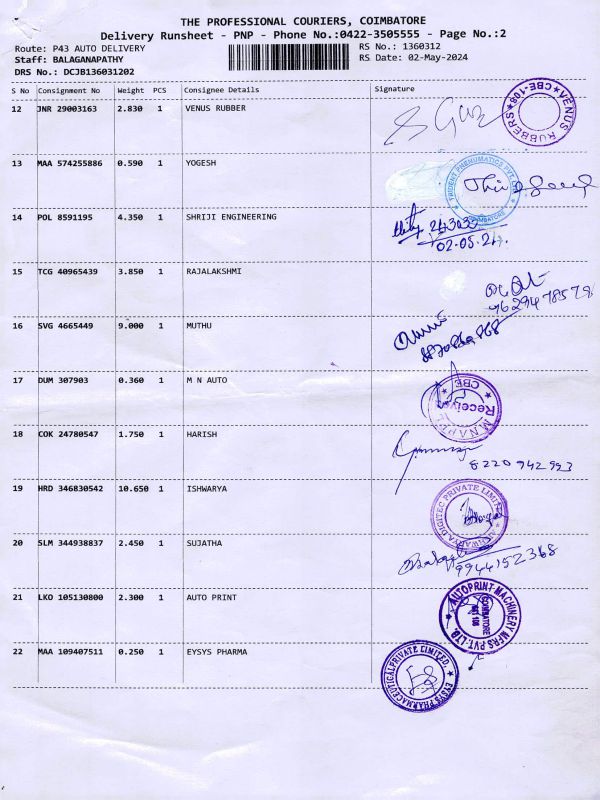 THE PROFESSIONAL COURIERS, COIMBATORE
Delivery Runsheet - PNP - Phone No.:0422-3505555 - Page No.:2
Route: P43 AUTO DELIVERY RS No.: 1360312
Staff: BALAGANAPATHY RS Date: 02-May-2024
DRS No.: DCJB136031202
S No Consignment No Weight PCS Consignee Details Signature
12 JNR 29003163 2.830 1 VENUS RUBBER
VENUS RUBBERS CBE-108
13 MAA 574255886 0.590 1 YOGESH
TRIDENT PNEUMATICS PVT. LTD. COIMBATORE
14 POL 8591195 4.350 1 SHRIJI ENGINEERING
02.05.24.
15 TCG 40965439 3.850 1 RAJALAKSHMI
16 SVG 4665449 9.000 1 MUTHU
17 DUM 307903 0.360 1 M N AUTO
Received
CBE
18 COK 24780547 1.750 1 HARISH
8220942993
19 HRD 346830542 10.650 1 ISHWARYA
ISHWARYA DIGITEC PRIVATE LIMITED
20 SLM 344938837 2.450 1 SUJATHA
9944152368
21 LKO 105130800 2.300 1 AUTO PRINT
AUTOPRINT MACHINERY MFRS PVT. LTD.
COIMBATORE
22 MAA 109407511 0.250 1 EYSYS PHARMA
EYSYS PHARMACEUTICAL PRIVATE LIMITED